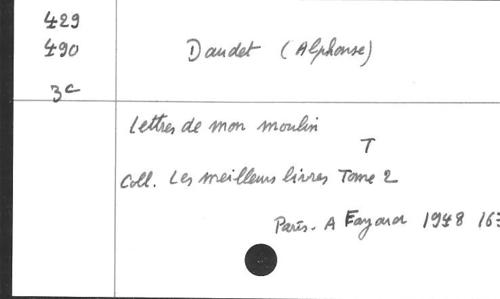 429
490
Daudet (Alphonse)
3c
Lettres de mon moulin
T
Coll. Les meilleurs livres Tome 2
Paris. A Fayard 1948 163